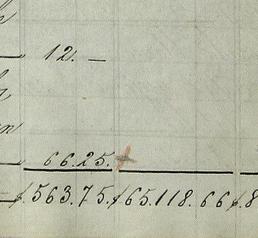 12. —
66.25.
f. 563.75. f 65.118.66 f. 8